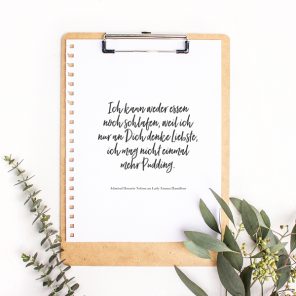 Ich kann weder essen
noch schlafen, weil ich
nur an Dich denke Liebste,
ich mag nicht einmal
mehr Pudding.
Admiral Horatio Nelson an Lady Emma Hamilton